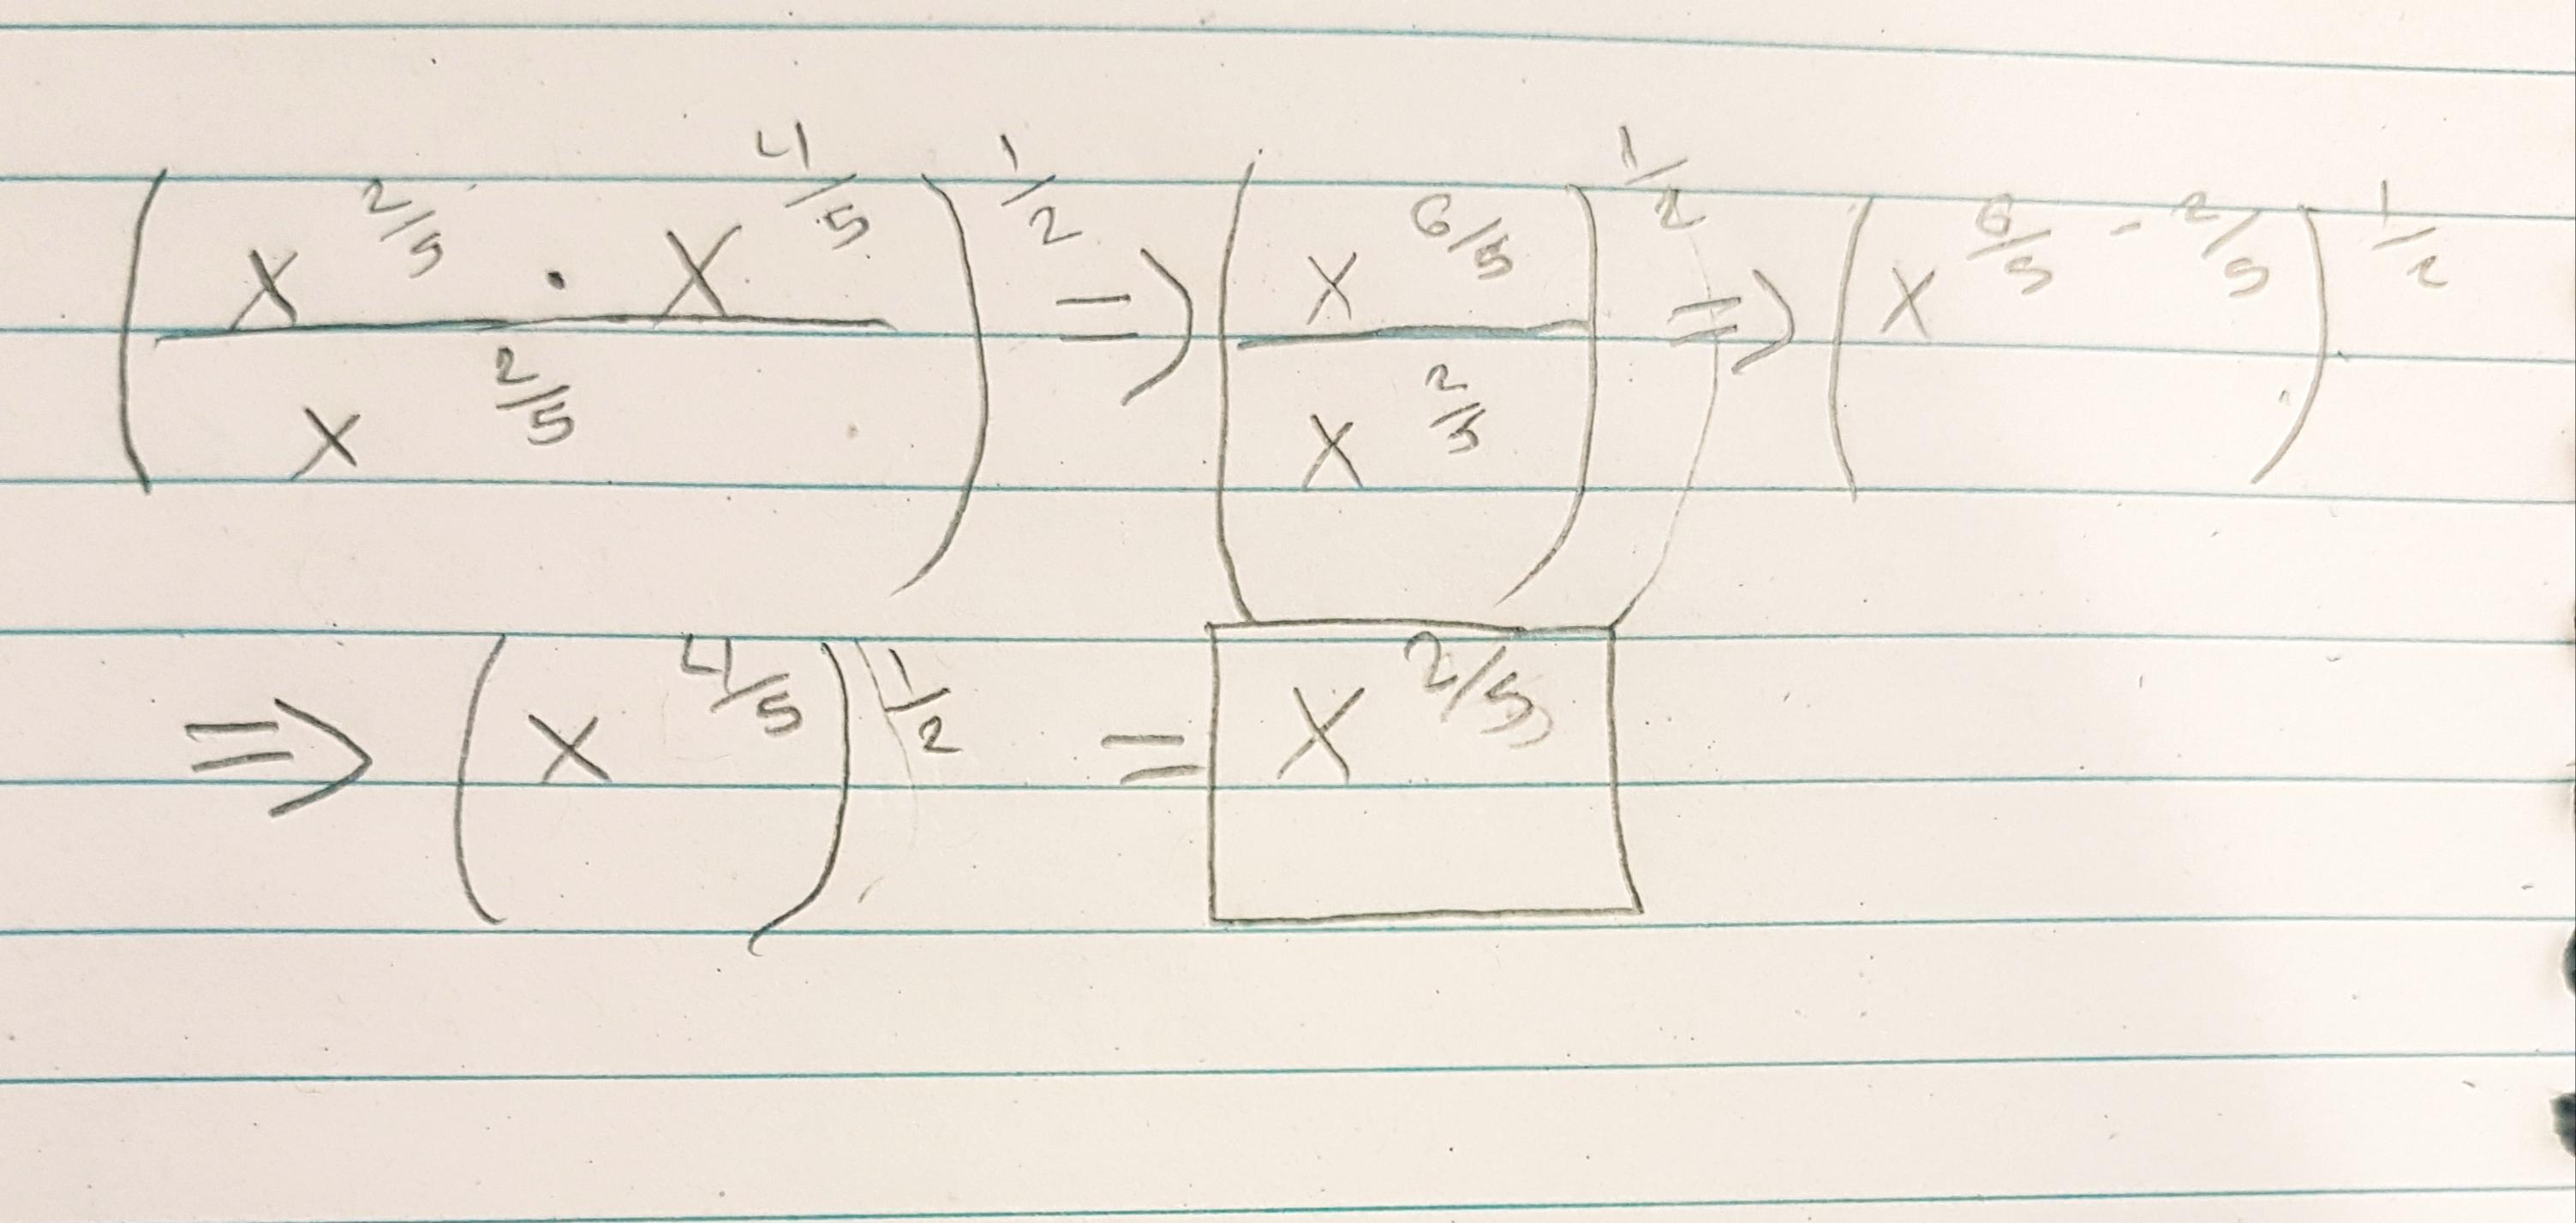 (x^{2/5} · x^{4/5} / x^{2/5})^{1/2} => (x^{6/5} / x^{2/5})^{1/2} => (x^{6/5 - 2/5})^{1/2}
=> (x^{4/5})^{1/2} = x^{2/5}